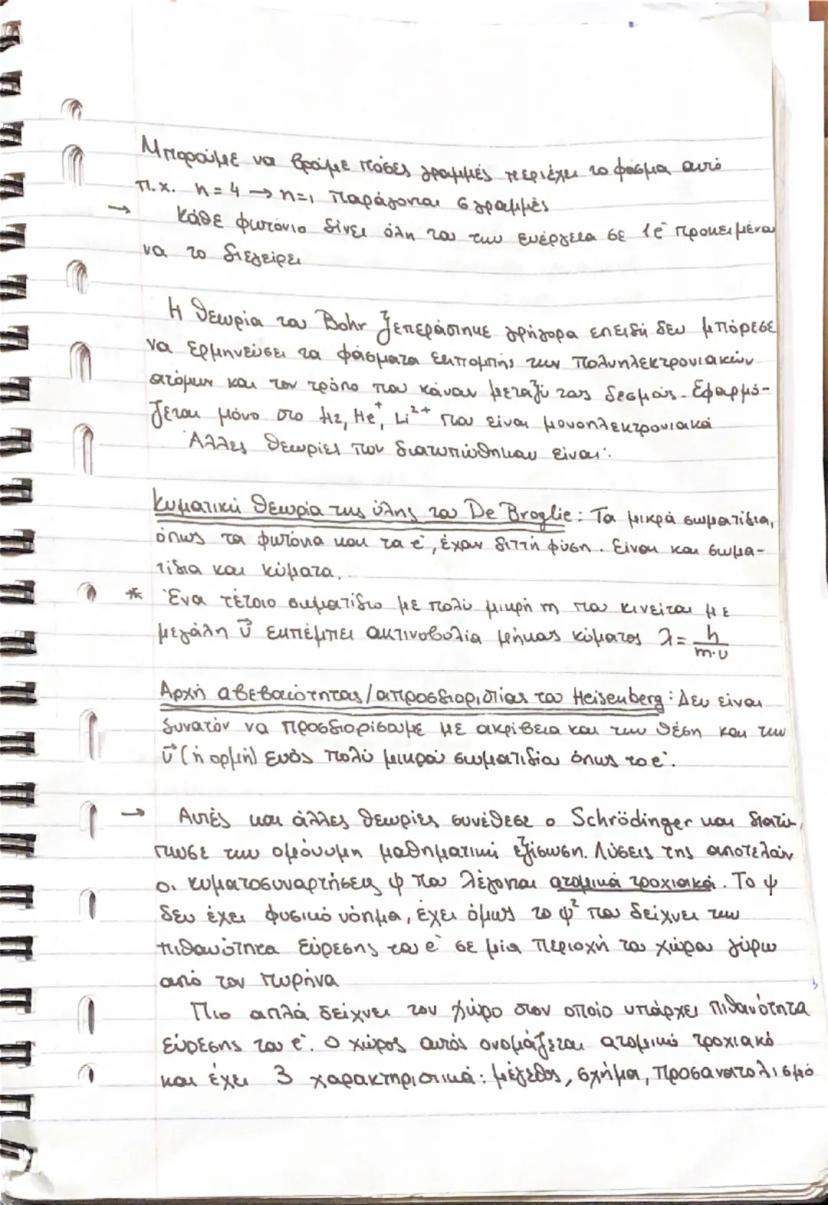 Μπορούμε να βρούμε πόσες γραμμές περιέχει το φάσμα αυτό
π.χ. n=4 → n=1 παράγονται 6 γραμμές
→ Κάθε φωτόνιο δίνει όλη του την ενέργεια σε 1e⁻ προκειμένου
να το διεγείρει
Η θεωρία του Bohr ξεπεράστηκε γρήγορα επειδή δεν μπόρεσε
να ερμηνεύσει τα φάσματα εκπομπής των πολυηλεκτρονιακών
ατόμων και τον τρόπο που κάναν μεταξύ τους δεσμούς. Εφαρμό-
ζεται μόνο στο H₂, He⁺, Li²⁺ που είναι μονοηλεκτρονιακά
Άλλες θεωρίες που διατυπώθηκαν είναι:
Κυματική θεωρία της ύλης του De Broglie: Τα μικρά σωματίδια,
όπως τα φωτόνια και τα e⁻, έχουν διττή φύση. Είναι και σωμα-
τίδια και κύματα.
* Ένα τέτοιο σωματίδιο με πολύ μικρή m που κινείται με
μεγάλη υ⃗ εκπέμπει ακτινοβολία μήκους κύματος λ = h/m·υ
Αρχή αβεβαιότητας/απροσδιοριστίας του Heisenberg: Δεν είναι
δυνατόν να προσδιορίσουμε με ακρίβεια και την θέση και την
υ⃗ (ή ορμή) ενός πολύ μικρού σωματιδίου όπως το e⁻.
→ Αυτές και άλλες θεωρίες συνέθεσε ο Schrödinger και διατύ-
πωσε την ομόνυμη μαθηματική εξίσωση. Λύσεις της αποτελούν
οι κυματοσυναρτήσεις ψ που λέγονται ατομικά τροχιακά. Το ψ
δεν έχει φυσικό νόημα, έχει όμως το ψ² που δείχνει την
πιθανότητα εύρεσης του e⁻ σε μία περιοχή του χώρου γύρω
από τον πυρήνα
Πιο απλά δείχνει τον χώρο στον οποίο υπάρχει πιθανότητα
εύρεσης του e⁻. Ο χώρος αυτός ονομάζεται ατομικό τροχιακό
και έχει 3 χαρακτηριστικά: μέγεθος, σχήμα, προσανατολισμό